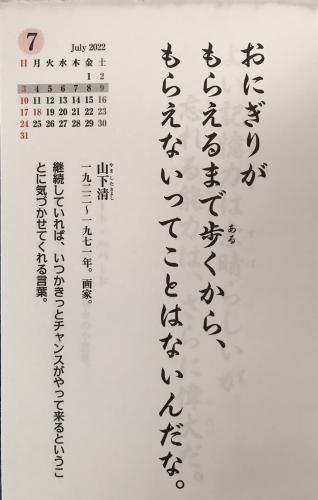 おにぎりが
もらえるまで歩くから、
ある
もらえないってことはないんだな。
7
July 2022
日 月 火 水 木 金 土
1 2
3 4 5 6 7 8 9
10 11 12 13 14 15 16
17 18 19 20 21 22 23
24 25 26 27 28 29 30
31
やましたきよし
山下清
一九二二〜一九七一年。画家。
継続していれば、いつかきっとチャンスがやって来るというこ
とに気づかせてくれる言葉。